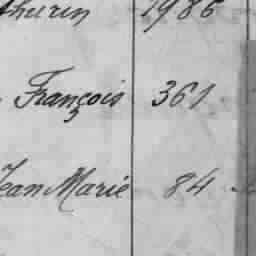 thurin 1986
François 361
Jean Marie 84